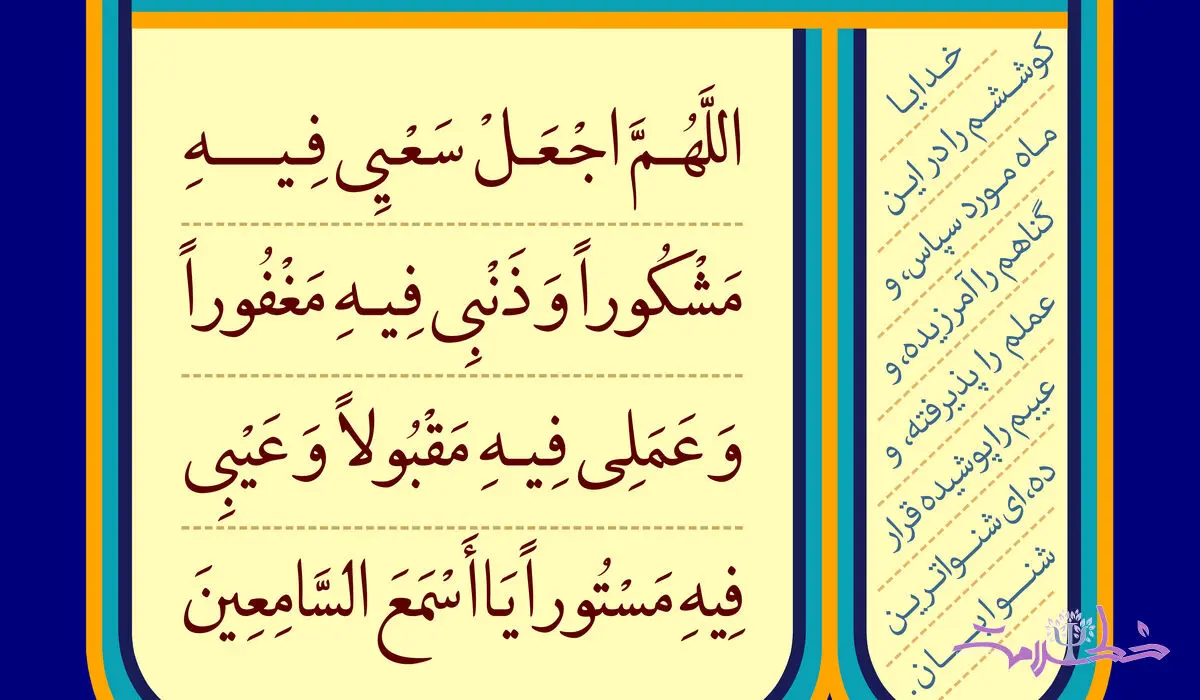 اللَّهُمَّ اجْعَلْ سَعْيِي فِيهِ
مَشْكُوراً وَ ذَنْبِي فِيهِ مَغْفُوراً
وَ عَمَلِي فِيهِ مَقْبُولاً وَ عَيْبِي
فِيهِ مَسْتُوراً يَا أَسْمَعَ السَّامِعِينَ
خدایا
کوششم را در این
ماه مورد سپاس، و
گناهم را آمرزیده، و
عملم را پذیرفته، و
عیبم را پوشیده قرار
ده، ای شنواترین
شنوایان.
خط سلامت